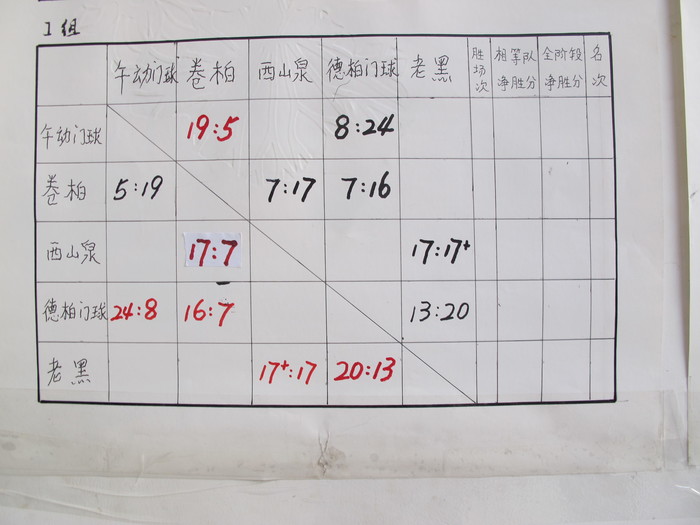 I组
午动门球 卷柏 西山泉 德柏门球 老黑 胜场次 相等队净胜分 全阶段净胜分 名次
午动门球 19:5 8:24
卷柏 5:19 7:17 7:16
西山泉 17:7 17:17+
德柏门球 24:8 16:7 13:20
老黑 17+:17 20:13